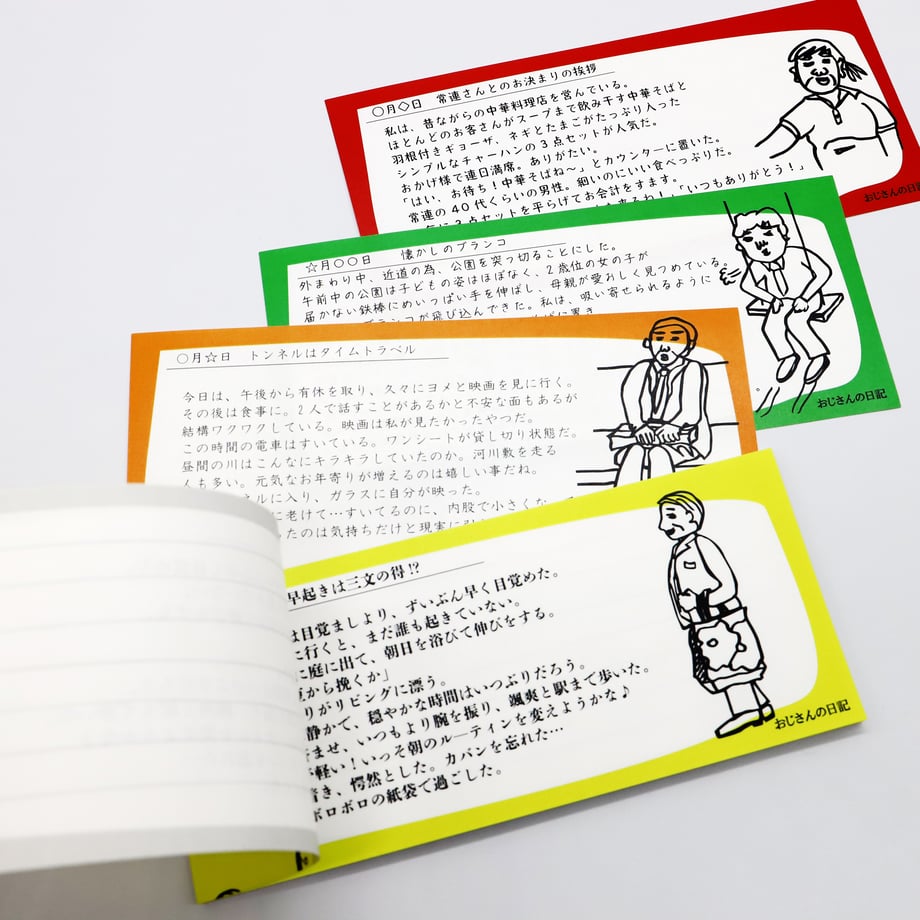 ○月◇日 常連さんとのお決まりの挨拶
私は、昔ながらの中華料理店を営んでいる。
ほとんどのお客さんがスープまで飲み干す中華そばと
羽根付きギョーザ、ネギとたまごがたっぷり入った
シンプルなチャーハンの3点セットが人気だ。
おかげ様で連日満席。ありがたい。
「はい、お待ち！中華そばね〜」とカウンターに置いた。
常連の40代くらいの男性。細いのにいい食べっぷりだ。
に3点セットを平らげてお会計をすます。
「いつもありがとう！」
おじさんの日記
☆月○○日 懐かしのブランコ
外まわり中、近道の為、公園を突っ切ることにした。
午前中の公園は子どもの姿はほぼなく、2歳位の女の子が
届かない鉄棒にめいっぱい手を伸ばし、母親が愛おしく見つめている。
ブランコが飛び込んできた。私は、吸い寄せられるように
おじさんの日記
○月☆日 トンネルはタイムトラベル
今日は、午後から有休を取り、久々にヨメと映画を見に行く。
その後は食事に。2人で話すことがあるかと不安な面もあるが
結構ワクワクしている。映画は私が見たかったやつだ。
この時間の電車はすいている。ワンシートが貸し切り状態だ。
昼間の川はこんなにキラキラしていたのか。河川敷を走る
人も多い。元気なお年寄りが増えるのは嬉しい事だね。
ネルに入り、ガラスに自分が映った。
に老けて…すいてるのに、内股で小さくなって
ったのは気持ちだけと現実に
早起きは三文の得!?
は目覚ましより、ずいぶん早く目覚めた。
に行くと、まだ誰も起きていない。
に庭に出て、朝日を浴びて伸びをする。
豆から挽くか」
りがリビングに漂う。
静かで、穏やかな時間はいつぶりだろう。
ませ、いつもより腕を振り、颯爽と駅まで歩いた。
軽い！いっそ朝のルーティンを変えようかな♪
着き、愕然とした。カバンを忘れた…
ボロボロの紙袋で過ごした。
おじさんの日記